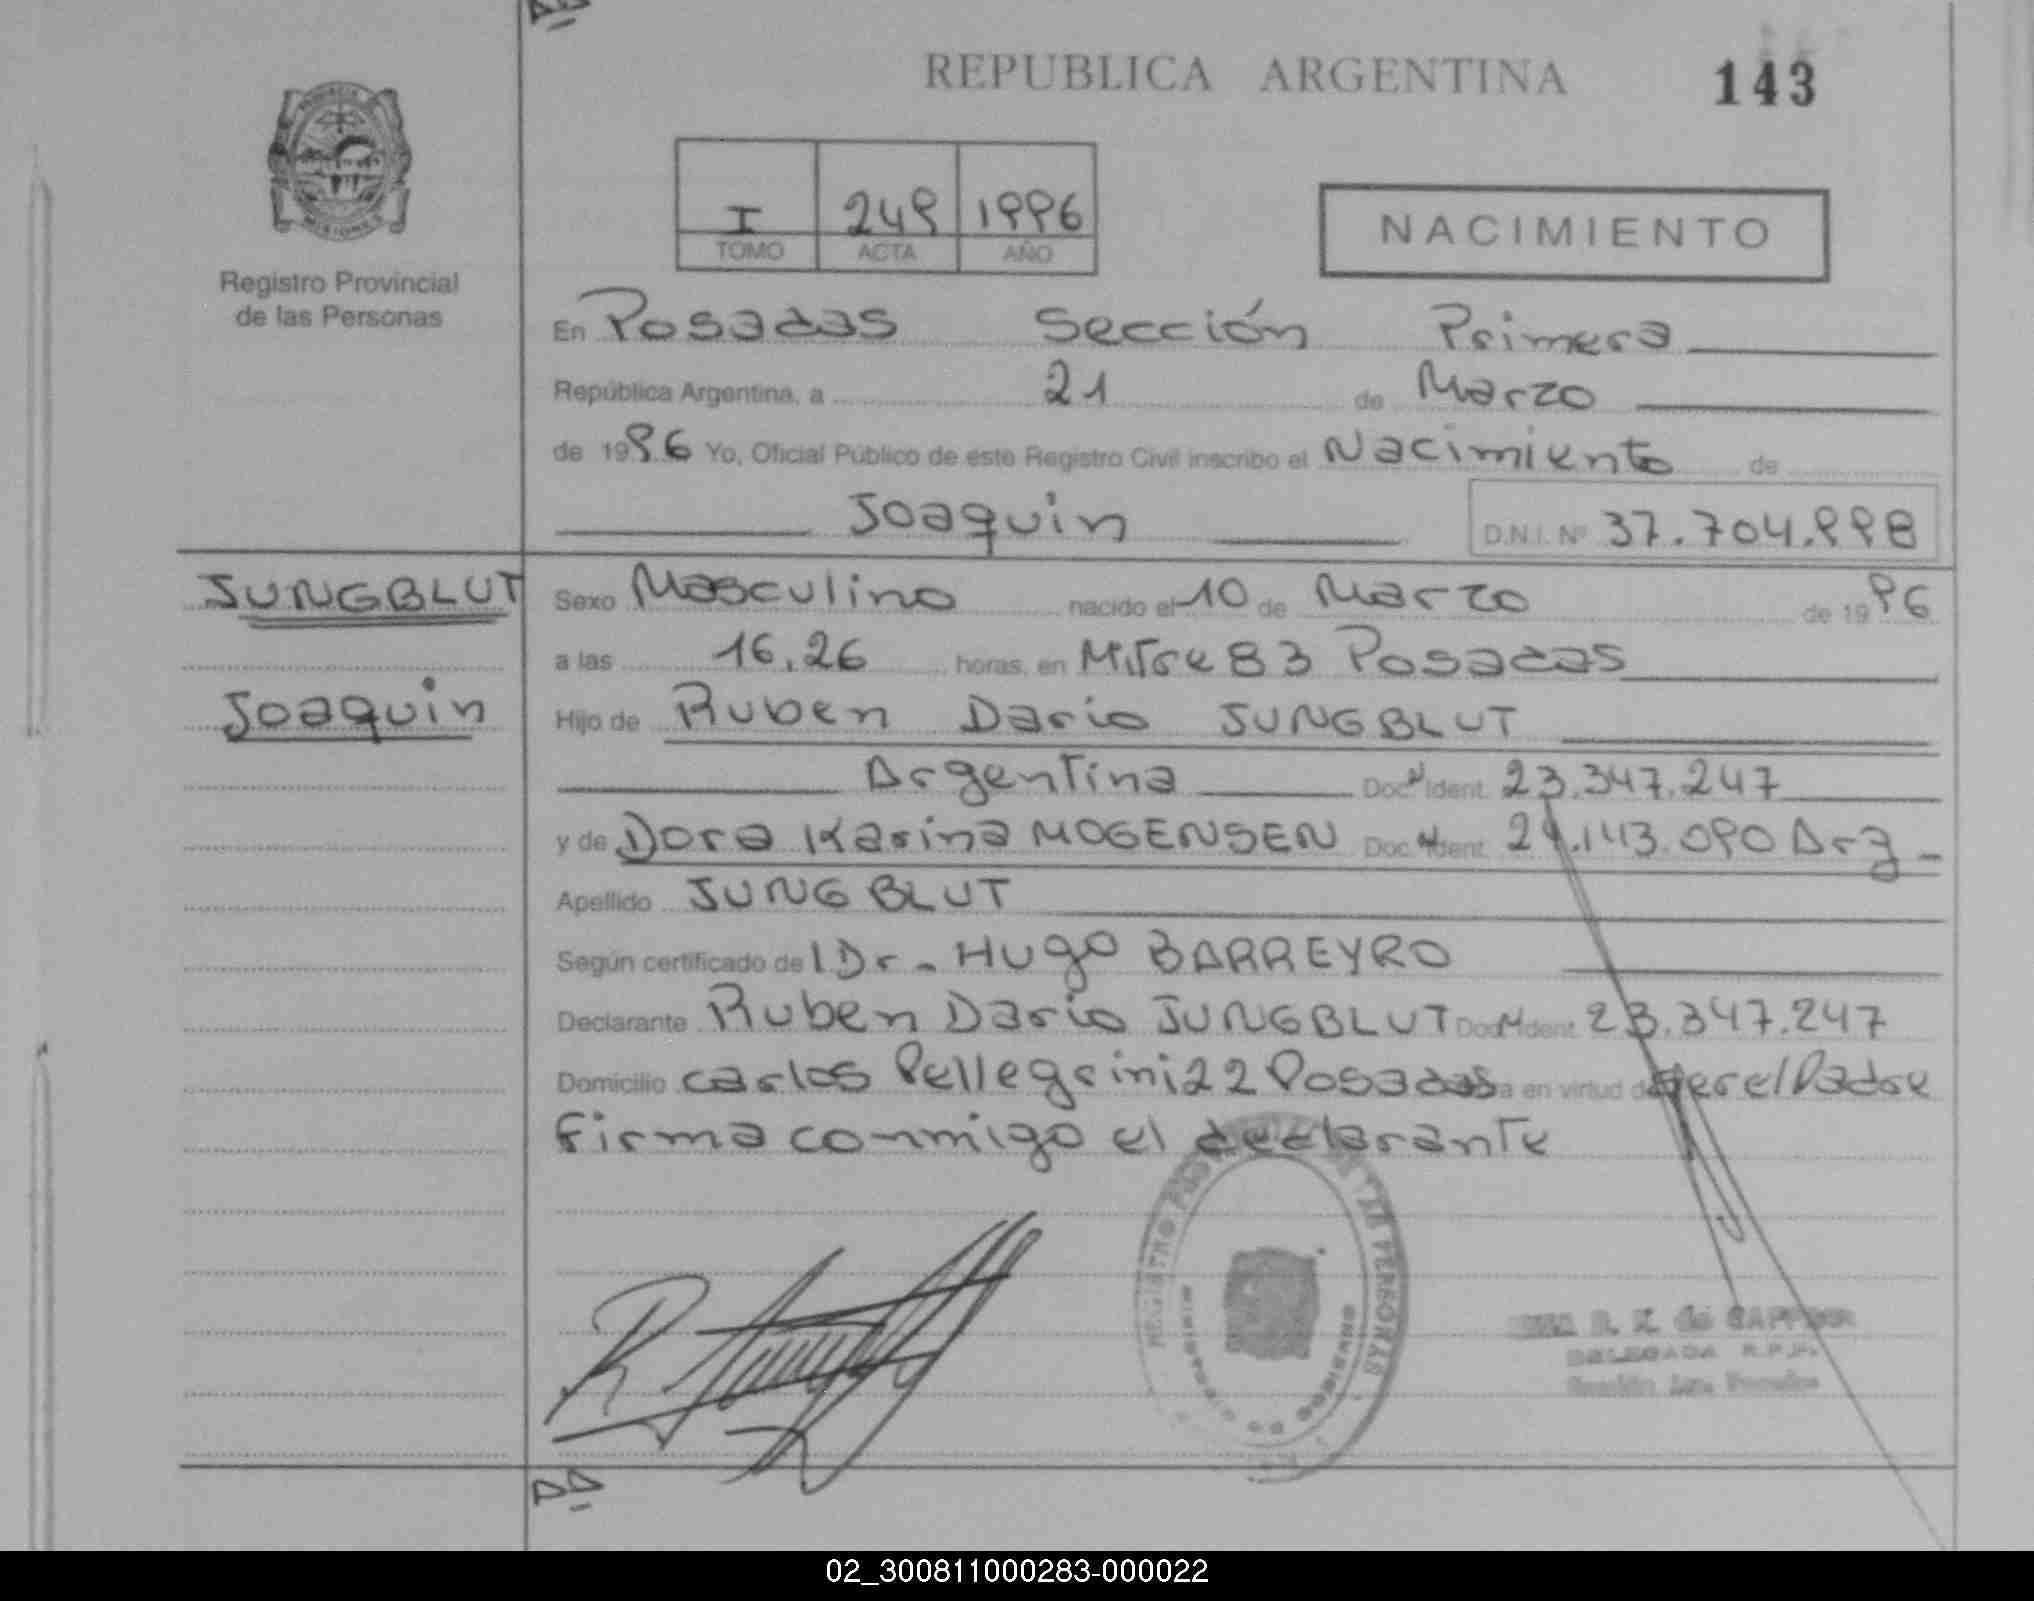 REPUBLICA ARGENTINA 143
I 249 1996
TOMO ACTA AÑO
NACIMIENTO
Registro Provincial
de las Personas
En Posadas Sección Primera
República Argentina, a 21 de Marzo
de 1996 Yo, Oficial Público de este Registro Civil inscribo el Nacimiento de
Joaquin D.N.I. Nº 37.704.998
JUNGBLUT
Joaquin
Sexo Masculino nacido el 10 de Marzo de 1996
a las 16.26 horas, en Mitre 83 Posadas
Hijo de Ruben Dario JUNGBLUT
Argentina Doc. Ident. 23.347.247
y de Dora Karina MOGENSEN Doc. Ident. 24.143.090 Arg
Apellido JUNGBLUT
Según certificado del Dr. Hugo BARREYRO
Declarante Ruben Dario JUNGBLUT Doc. Ident. 23.347.247
Domicilio Carlos Pellegrini 22 Posadas en virtud de ser el Padre
Firma conmigo el declarante
REGISTRO DE LAS PERSONAS
DELEGADA R.P.P.
02_300811000283-000022